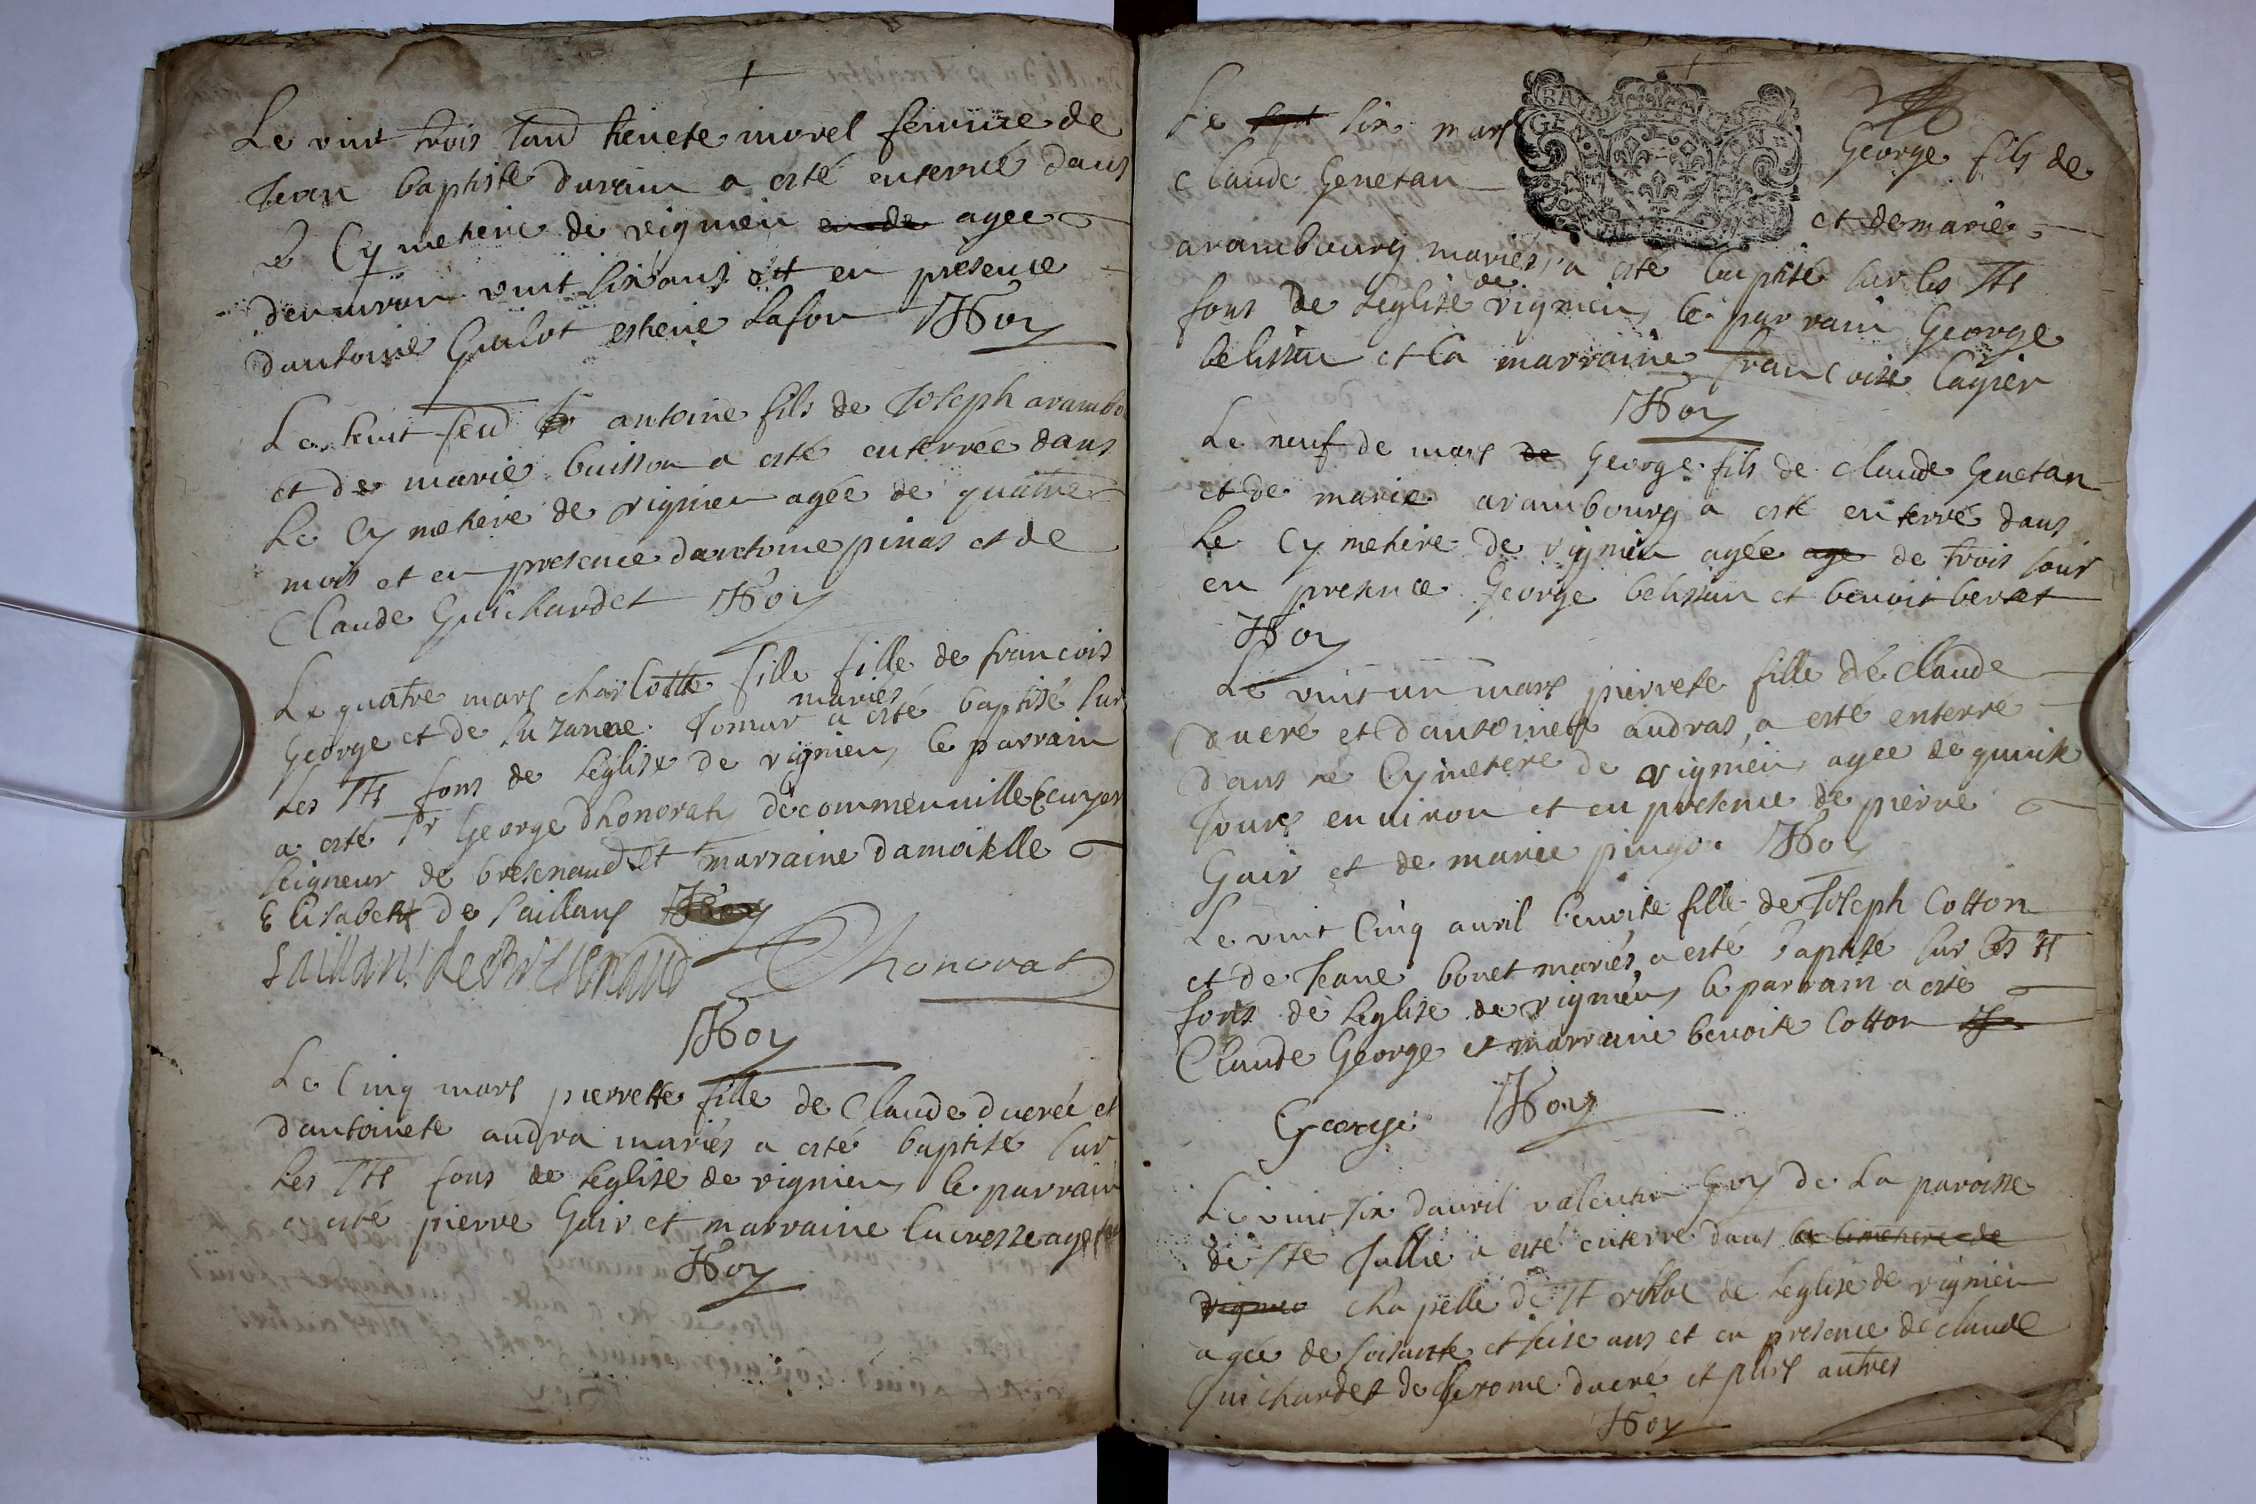 Le vint trois Janv henete morel femme de
Jean baptiste durain a esté enterré dans
le Cymetiere de vignieu agee
denuiron vint six ans et en presence
dantoine Guilot estiene Lafon JRoy
Le huit feu antoine fils de Joseph arambo
et de marie buisson a esté enterrée dans
Le Cymetiere de vignieu agée de quatre
mois et en presence dantoine pinas et de
Claude Guichardet JRoy
Le quatre mars charlotte fille fille de francois
mariés
George et de Suzanne Jomar a esté baptisé sur
les Sts fons de Leglise de vignieu le parrain
a esté Sr George Dhonorat de commenuille Ecuyer
seigneur de bresenaud et marraine damoiselle
Elisabeth de Saillans
Saillans de Bressenaud Dhonorat
JRoy
Le Cinq mars pierrette fille de Claude ducré et
dantoinete audra mariés a esté baptisé sur
Les Sts fons de Leglise de vignieu le parrain
a esté pierre Guir et marraine Lucresse
JRoy
Le six mars George fils de
Claude Genetan et de marie
arambourg mariés a esté baptisé sur les Sts
de
fons de Leglise vignieu le parrain George
belissin et la marraine francoise Cagier
JRoy
Le neuf de mars George fils de Claude Genetan
et de marie arambourg a esté enterré dans
Le Cymetiere de vignieu agée de trois jour
en presence George belissin et benoit berset
JRoy
Le vint un mars pierrete fille de Claude
ducré et dantoinete audras a esté enterré
dans le Cymetere de vignieu agee de quinse
Jours enuiron et en presence de pierre
Guir et de marie pingo JRoy
Le vint Cinq auril benoite fille de Joseph Cotton
et de Jeane bonet mariés a esté baptisé sur les St
fons de Leglise de vignieu le parrain a esté
Claude George et marraine benoite Cotton
George JRoy
Le vint six dauril valentin Guy de La paroisse
de Ste Jullie a esté enterré dans le cimetiere de
vignieu chapelle de St de Leglise de vignieu
agée de soisante et seise ans et en presence de claude
Guichardet de Jerome ducré et plus autres
JRoy